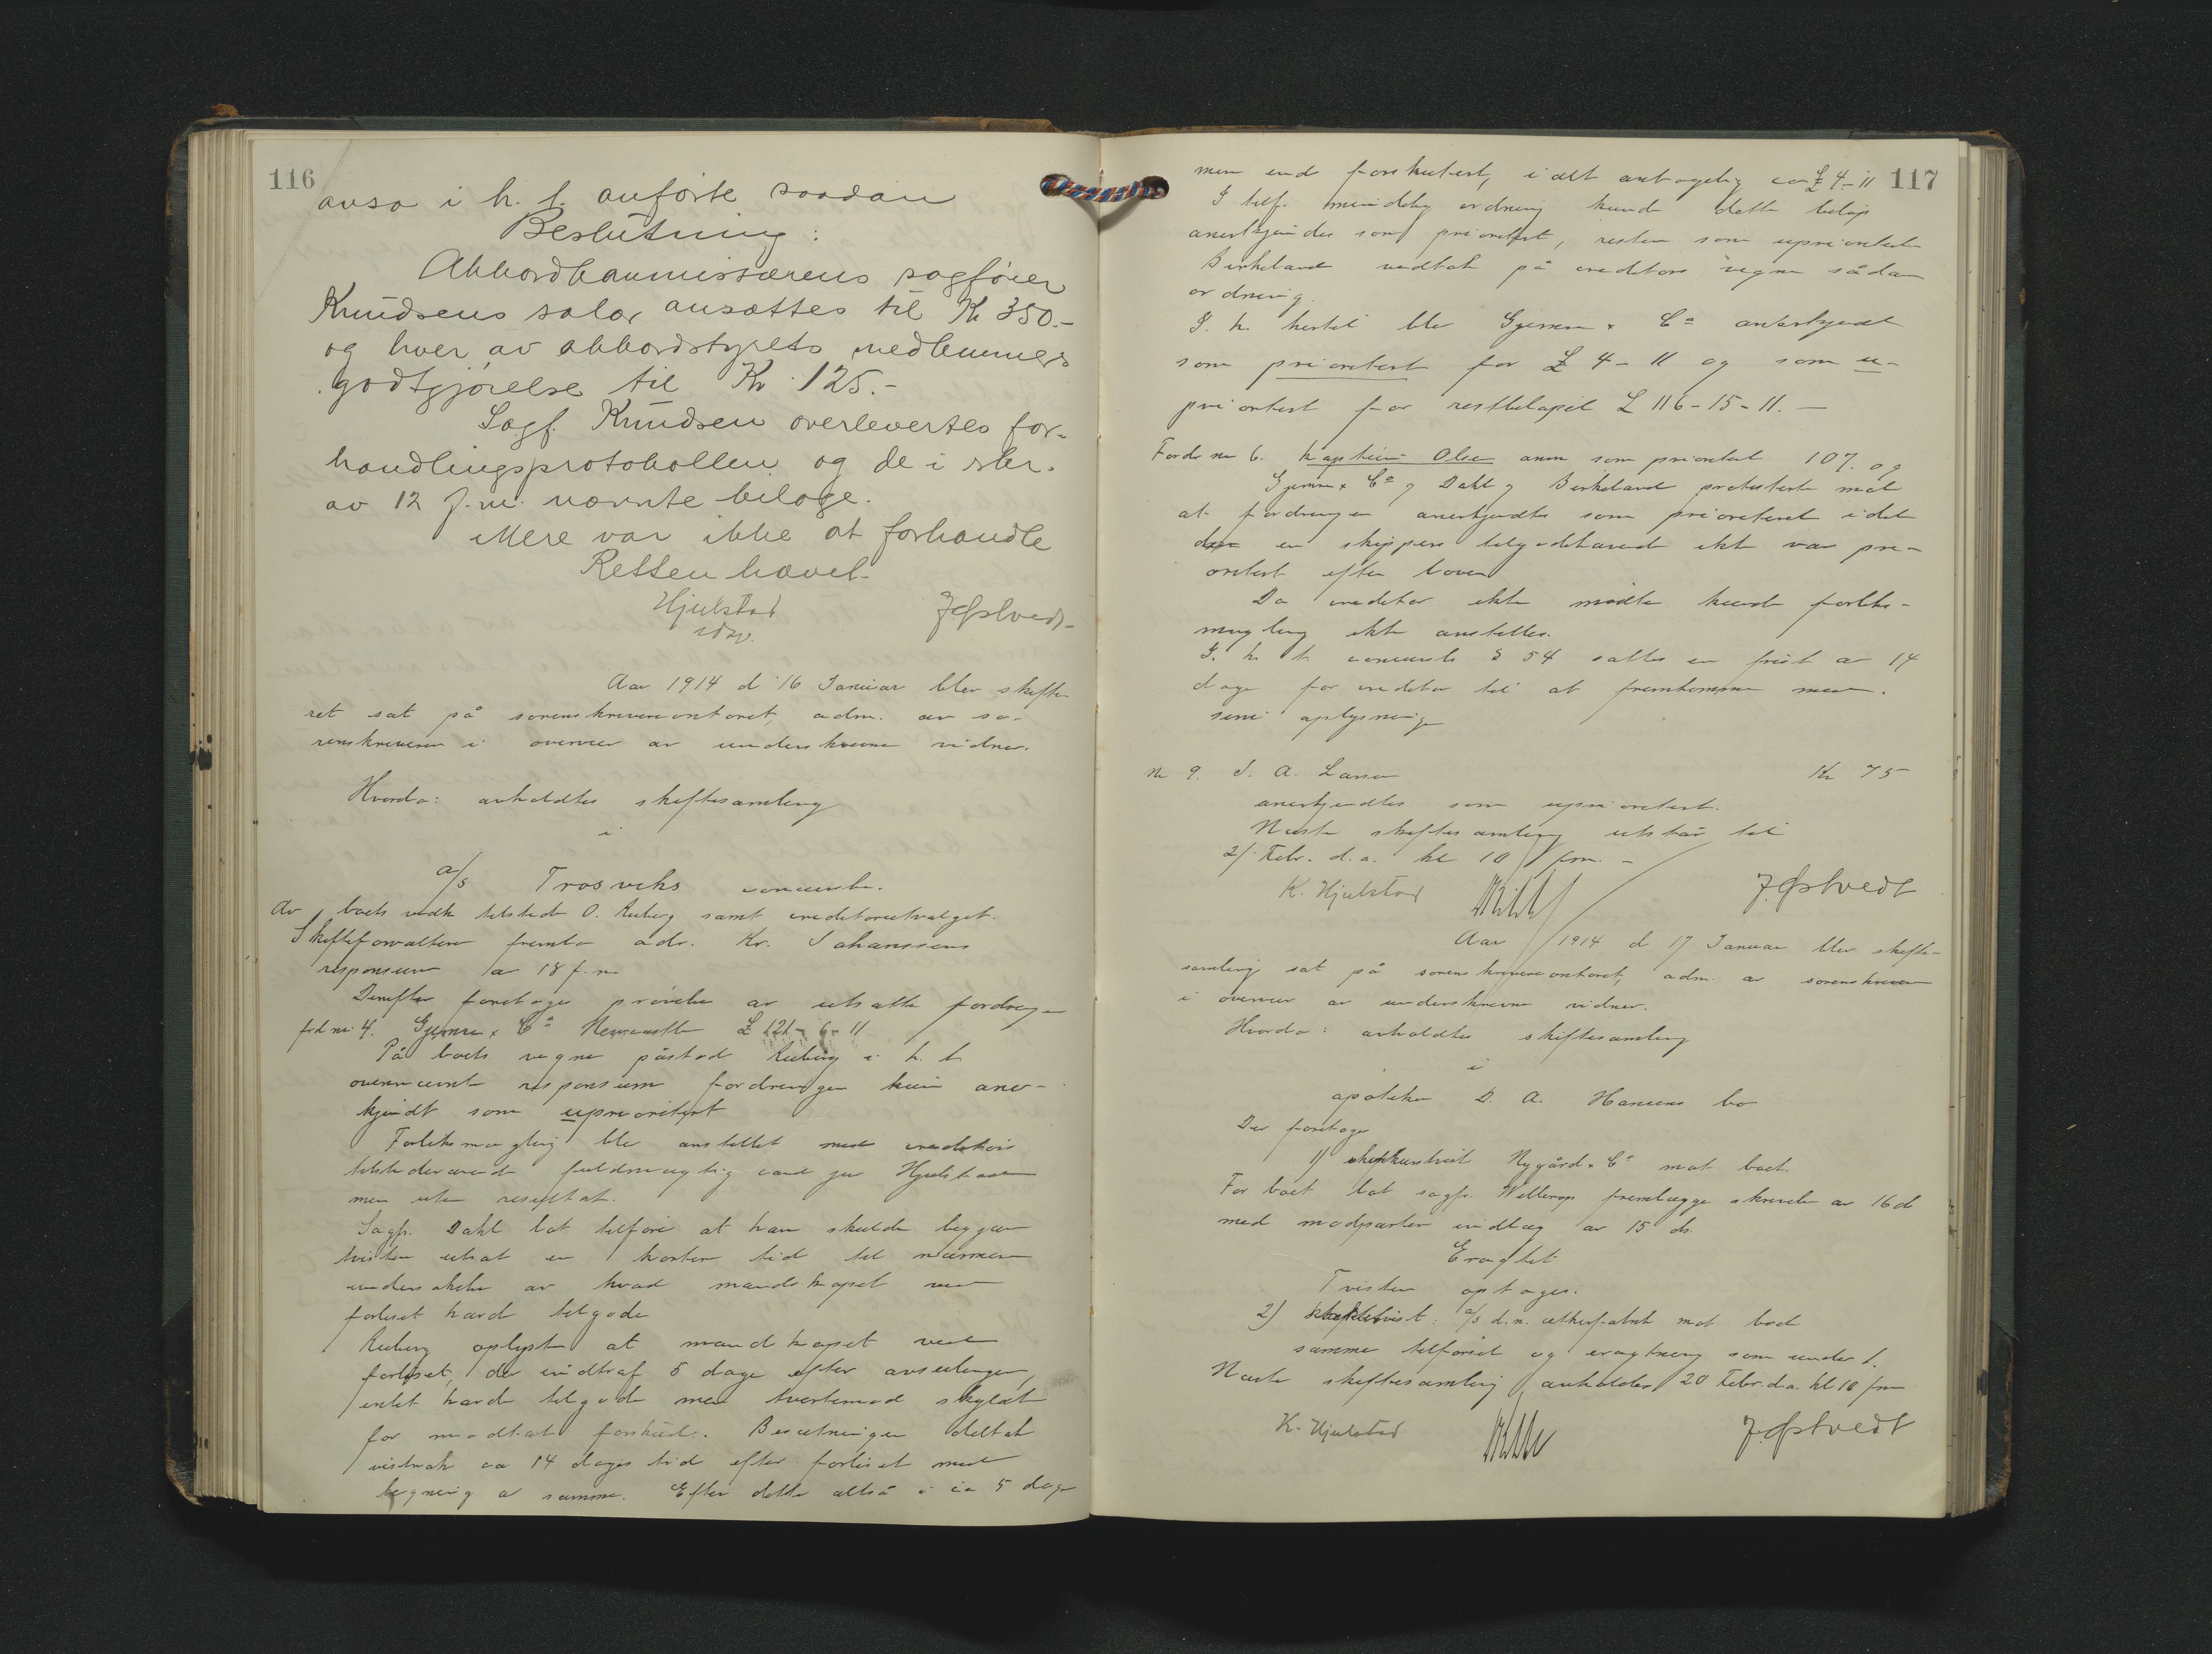 116
avsa i h. t. anførte saadan
Beslutning:
Akkordkommissærens sagfører
Knudsens salær ansættes til Kr 350.-
og hver av akkordstyrets medlemmers
godtgjørelse til Kr. 125.-
Sagf. Knudsen overlevertes for-
handlingsprotokollen og de i skr.
av 12 f.m. nævnte bilage.
Mere var ikke at forhandle
Retten hævet.
Hjulstad J. Østvedt
Aar 1914 d 16 Januar blev skifte
ret sat på sorenskriverkontoret, adm. av so-
renskriveren i overvær av underskrevne vidner.
Hvorda: avholdtes skiftesamling
i
a/s Trosviks concursbo.
Av boets vedk tilstede O. Ruberg samt creditorutvalget.
Skifteforvalteren fremla adv. Kr. Johanssens
responsum av 18 f.m.
Derefter foretoges prøvelse av utsatte fordringer
frd nr. 4. & Co Newcastle £ 121-6-11
På boets vegne påstod Ruberg i h. t.
overnævnte responsum fordringen kun aner-
kjendt som uprioritert
Forliksmægling blev anstillet med creditors
tilstedeværende fuldmægtig cand jur Hjulstad
men uten resultat.
Sagfr. Dahl lot tilføre at han skulde begjære
tvisten utsat en kortere tid til nærmere
undersøkelse av hvad mandskapet ved
forliset havde tilgode
Ruberg oplyste at mandskapet ved
forliset, der indtraf 5 dage efter avseilingen,
intet havde tilgode men tvertemod skyldt
for modtat forskud. Besætningen deltok
vistnok ca 14 dages tid efter forliset med
bergning av samme. Efter dette altså i ca 5 dage
117
men end forskutert, i alt antagelig ca £ 4-11
I tilf. mindelig ordning kunde dette beløp
anerkjendes som prioritert, resten som uprioritert
Birkeland vedtok på creditors vegne sådan
ordning.
I. h. hertil blev & Co anerkjendt
som prioritert for £ 4-11 og som u-
prioritert for restbeløpet £ 116-15-11.-
Fordr nr 6. kaptein Olsen anm som prioritert 107. og
& Co og Dahl og Birkeland protesterte mot
at fordringen anerkjendtes som prioriteret idet
en skippers tilgodehavende ikke var pri-
oritert efter loven
Da creditor ikke mødte kunde forliks-
mægling ikke anstilles.
I. h. t. concursl. § 54 sattes en frist av 14
dage for creditor til at fremkomme med
sine oplysninger
Nr 9. J. A. Larsen Kr 75
anerkjendtes som uprioritert.
Næste skiftesamling utstår til
2/ Febr. d.a. kl 10 fm. -
K. Hjulstad J. Østvedt
Aar 1914 d 17 Januar blev skifte-
samling sat på sorenskriverkontoret, adm. av sorenskriveren
i overvær av underskrevne vidner.
Hvorda: avholdtes skiftesamling
i
apoteker D. A. Hansens bo
Der foretoges
1) skiftetvist Nygård & Co mot boet.
For boet lot sagfr. Wellerop fremlægge skrivelse av 16 ds
med modpartens indlæg av 15 ds.
Eragtet
Tvisten optages.
2) skiftetvist: a/s d.n. æskefabrik mot boet
samme tilførsel og eragtning som under 1.
Næste skiftesamling avholdes 20 Febr. d.a. kl 10 fm
K. Hjulstad J. Østvedt